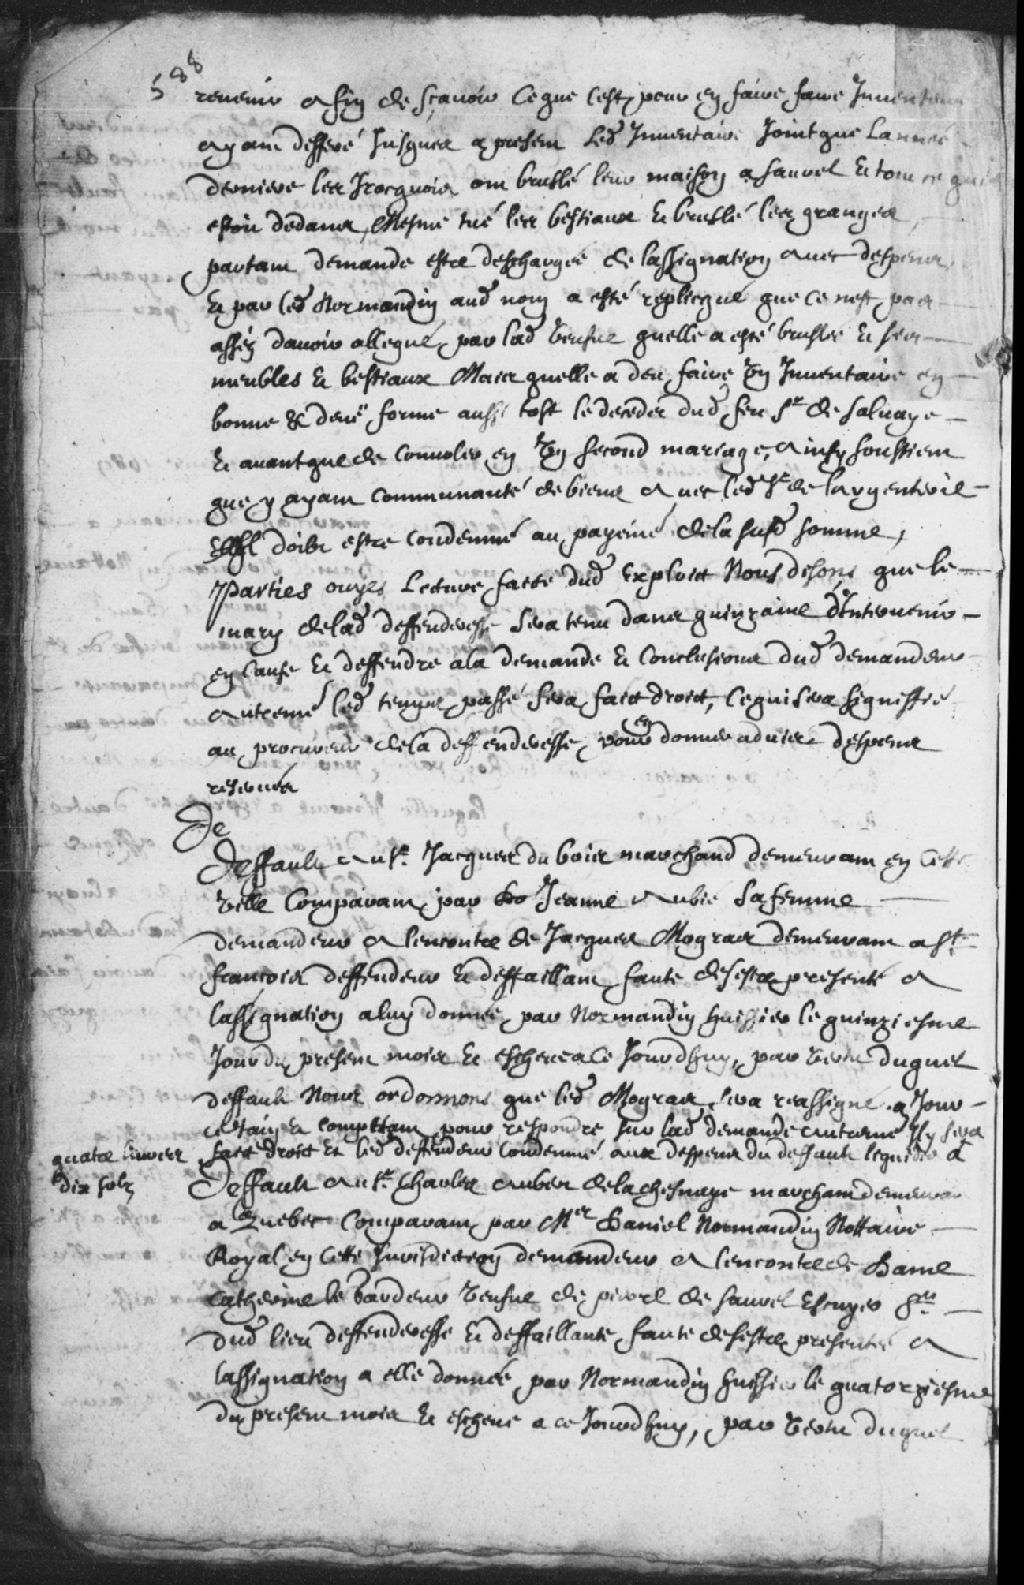 588
revenir afin de sçavoir ce que c'est pour en faire faire Inventaire
ayant defferé Jusques a present led Inventaire Joint que Lannée
derniere les Irocquois ont bruslé leur maison a Saurel et tout ce qui
estoit dedans, Mesme tué les bestiaux et bruslé les granges
partant demande estre deschargée de lassignation avec despens
Et par led Normandin aud nom a esté replicqué que ce nest pas
assez davoir allegué par lad veufue quelle a esté bruslée et ses
meubles et bestiaux Mais quelle a deu faire un Inventaire en
bonne & deue forme aussi tost le deceder dud feu Sr de Saluaye
Et auant que de Conuoler en un second mariage, ainsy soustient
que y ayant Communauté de biens auec led Sr de Largenteuil
doibt estre Condemné au payemt de la susd somme,
Parties ouyes Lecture faite dud Exploict Nous disons que le
mary de lad deffenderesse sera tenu dans quinzaine dIntervenir
en Cause et deffendre a la demande et Conclusions dud demandeur
autremt led temps passé sera faict droict, ce qui sera signiffié
au procureur de la deffenderesse, pour en donner aduis despens
reservés
De
Deffault au Sr Jacques du bois marchand demeurant en Cette
ville Comparant par Jeanne Aubie sa femme
demandeur a lencontre de Jacques Mograx demeurant a St
francois deffendeur et deffaillant faute de sestre presenté a
lassignation a luy donnée par Normandin huissier le quinziesme
Jour du present mois et escheue a ce Jourdhuy, par vertu duquel
deffault Nous ordonnons que led Mograx sera reassigné a Jour
certain et Compettant pour respondre sur lad demande autremt Il y sera
faict droict et led deffendeur Condemné aux despens du deffault liquidés a
quatre livres
dix solz
Deffault au Sr Charles Aubert de la chesnaye marchant demeurant
a Quebec Comparant par Mer Daniel Normandin Nottaire
Royal en Cette Jurisdiction demandeur a lencontre de Dame
Catherine le Gardeur veufue de pierre de Saurel Escuyer Sgr
dud lieu deffenderesse et deffaillante faute de sestre presentée a
lassignation a elle donnée par Normandin huissier le quatorziesme
du present mois et escheue a ce Jourdhuy, par vertu duquel